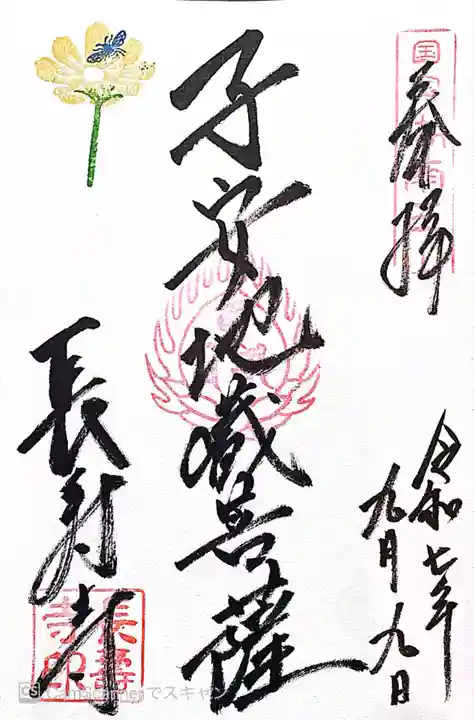 奉拝
令和七年
九月九日
子安地蔵菩薩
長寿寺
長壽
寺印
CS CamScannerでスキャン